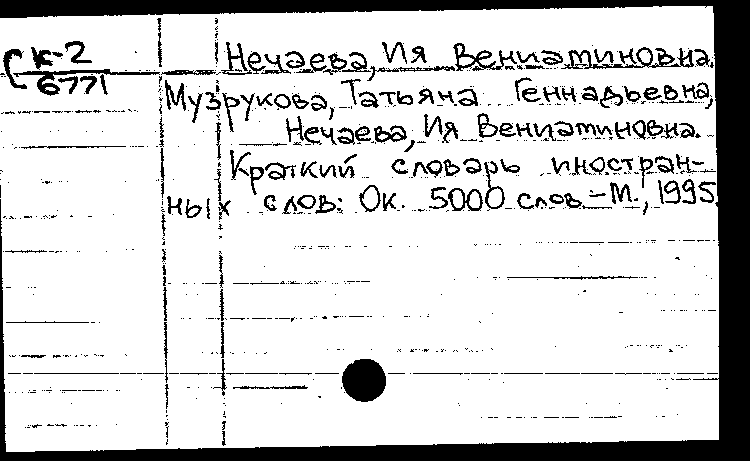 Нечаева, Ия Вениаминовна.
К-2
6771
Музрукова, Татьяна Геннадьевна,
Нечаева, Ия Вениаминовна.
Краткий словарь иностран-
ных слов: Ок. 5000 слов. – М., 1995.